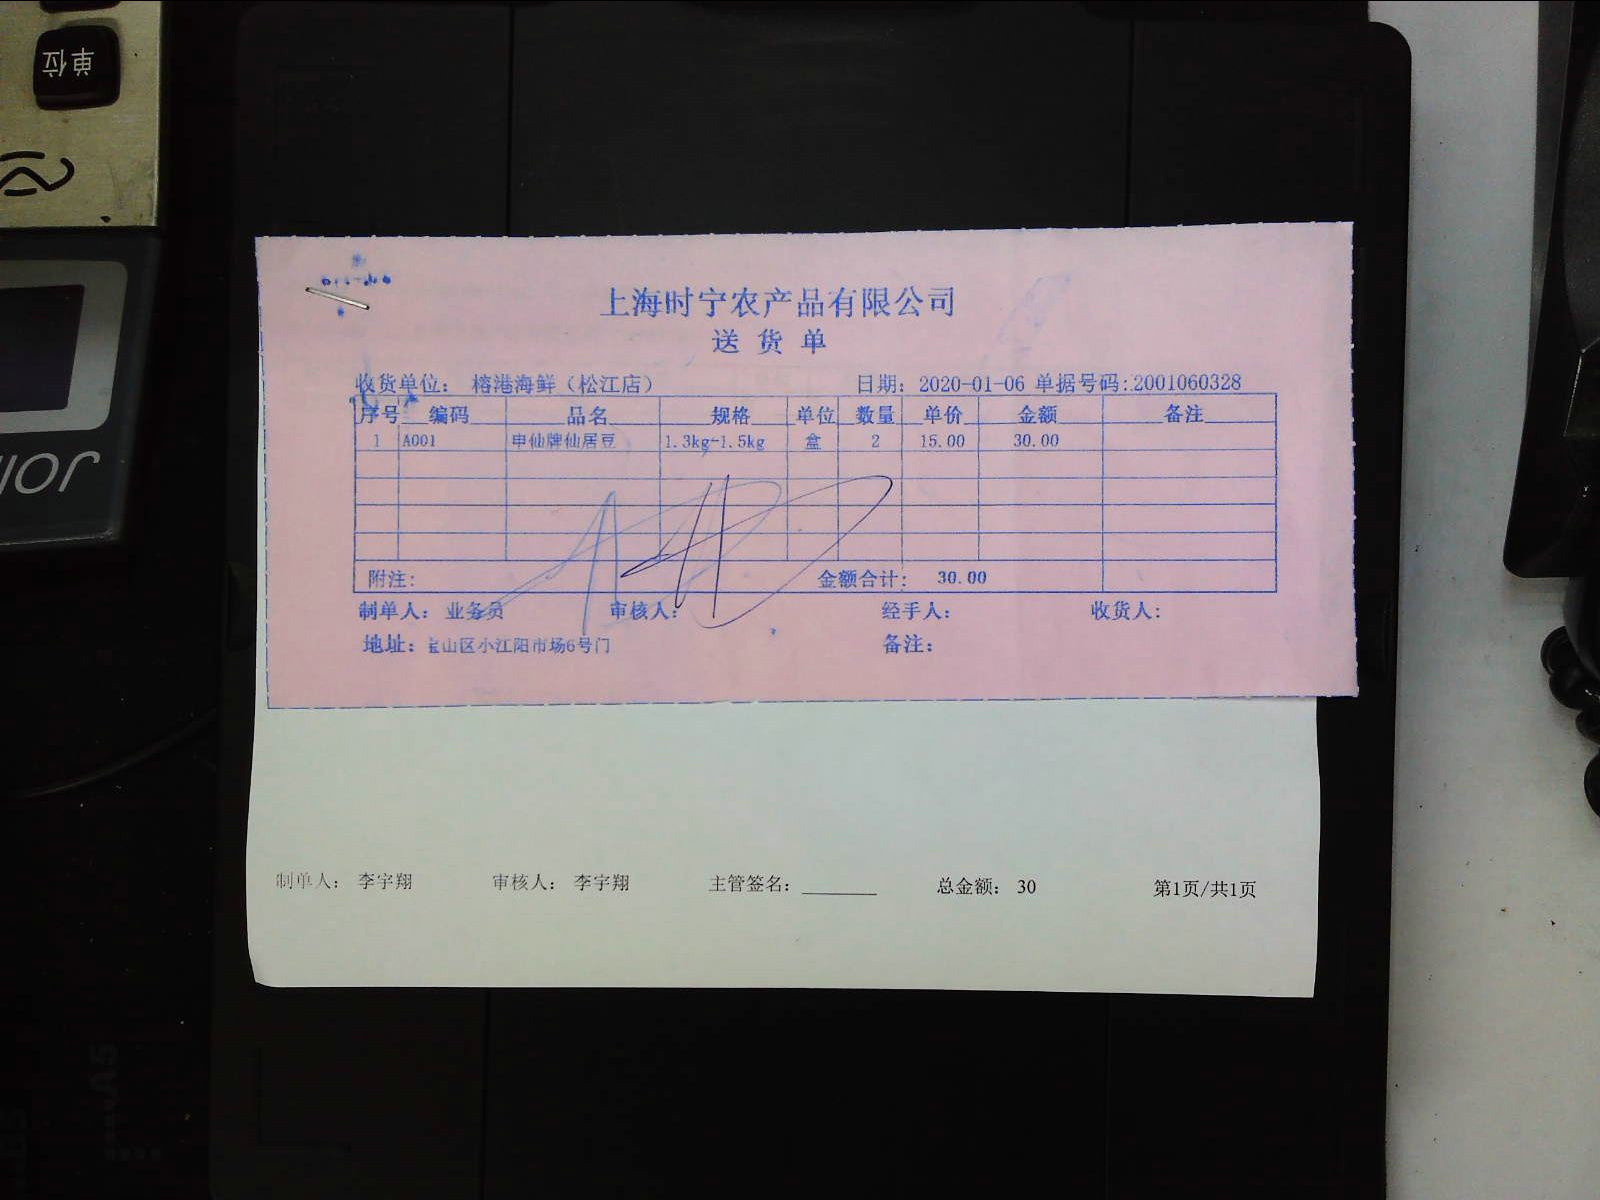 单位
上海时宁农产品有限公司
送货单
收货单位: 榕港海鲜（松江店） 日期: 2020-01-06 单据号码:2001060328
序号 编码 品名 规格 单位 数量 单价 金额 备注
1 A001 申仙牌仙居豆 1.3kg-1.5kg 盒 2 15.00 30.00
附注: 金额合计: 30.00
制单人: 业务员 审核人: 经手人: 收货人:
地址: 宝山区小江阳市场6号门 备注:
制单人: 李宇翔 审核人: 李宇翔 主管签名: 总金额: 30 第1页/共1页
A5